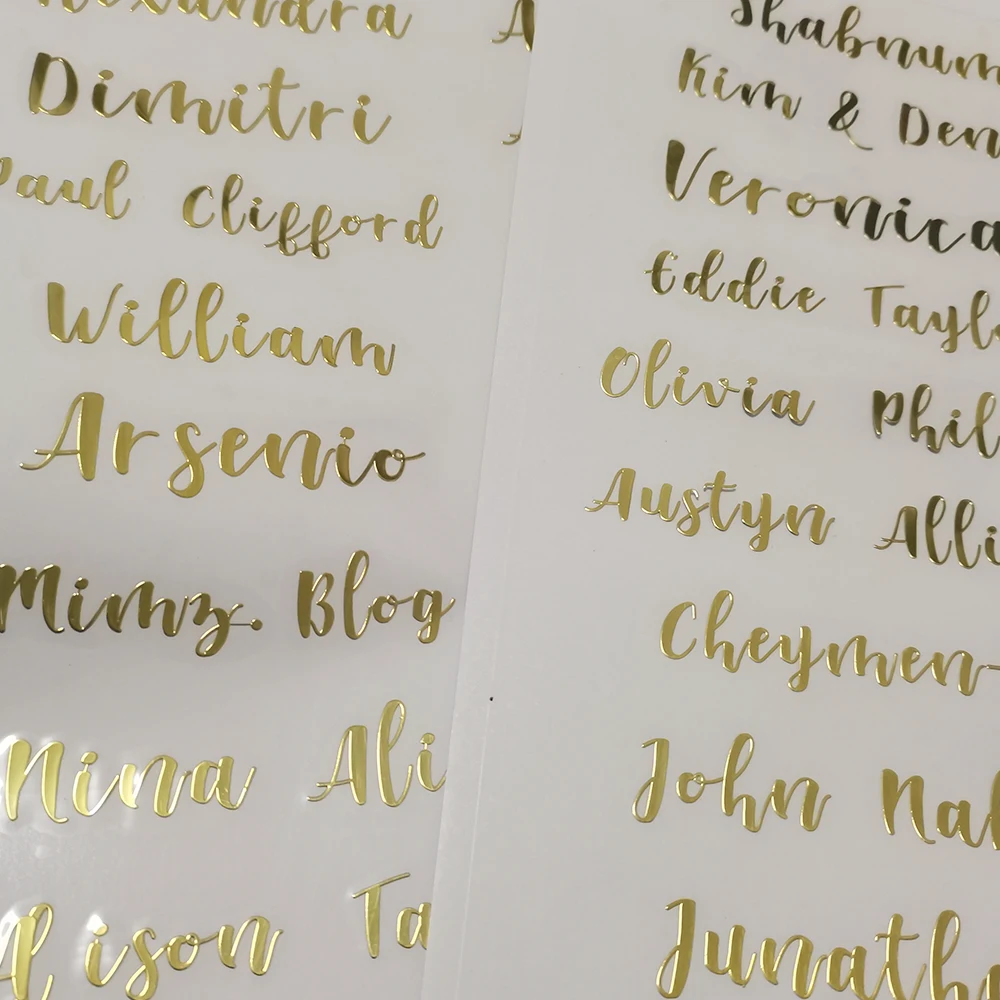 Alexandra
Dimitri
Paul Clifford
William
Arsenio
Mimz. Blog
Nina Ali
Alison Ta
Shabnum
Kim & Den
Veronica
Eddie Tayl
Olivia Phil
Austyn Alli
Cheymen-
John Nal
Junath